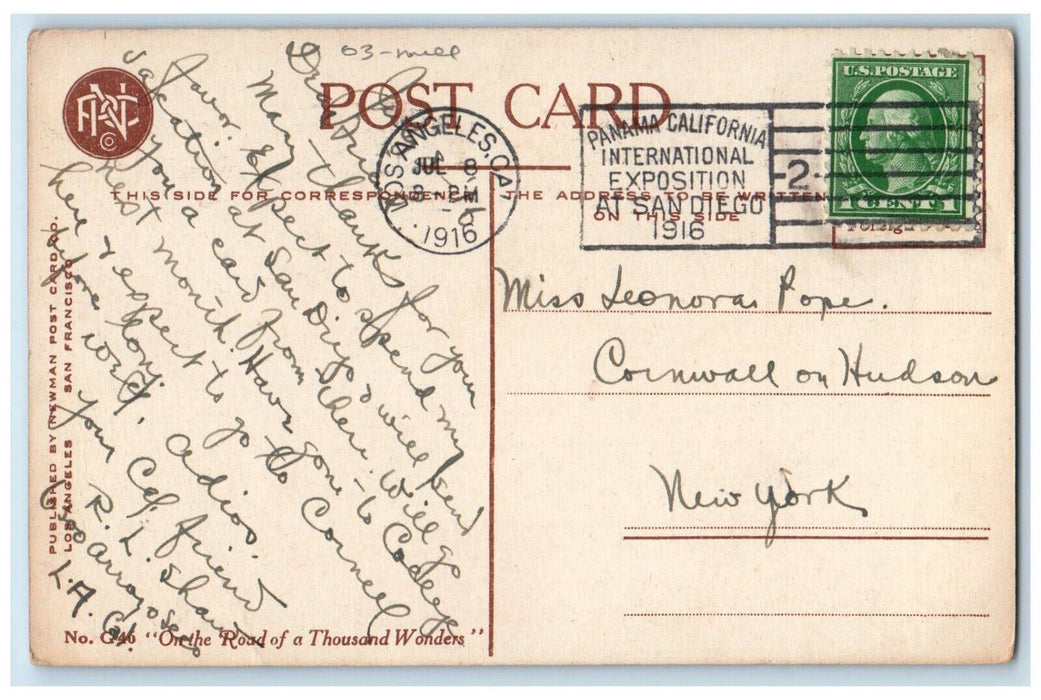 03-mell
POST CARD
THIS SIDE FOR CORRESPONDENCE
THE ADDRESS TO BE WRITTEN
ON THIS SIDE
LOS ANGELES, CAL.
JUL 8
PM
1916
PANAMA CALIFORNIA
INTERNATIONAL
EXPOSITION
AT SAN DIEGO
1916
2
U.S. POSTAGE
1 CENT 1
Foreign
Dear Friend
Many thanks for your
favor. Expect to spend my
vacation at San Diego & will send
you a card from there. Will go
next month. Have gone to College
here & expect to go to Cornell
before long.
Adios.
Your Cal. friend
R. L. Shaw
Arroyo Seco
L.A. Cal.
Miss Leonora Pope.
Cornwall on Hudson
New York
PUBLISHED BY NEWMAN POST CARD CO.
LOS ANGELES SAN FRANCISCO
No. G46 "On the Road of a Thousand Wonders"